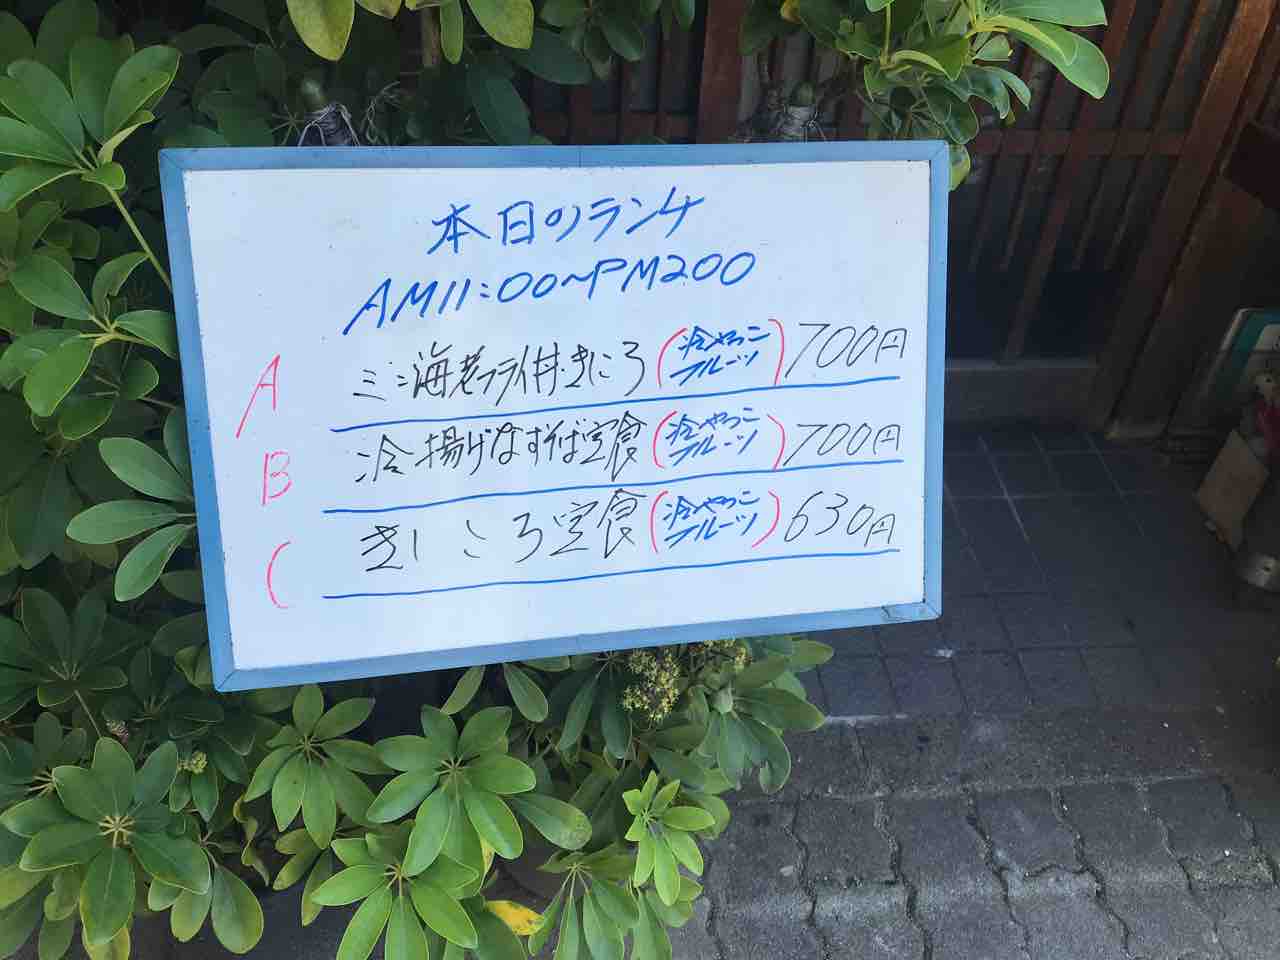 本日のランチ
AM11:00~PM200
A ミニ海老フライ付・きころ(冷やっこフルーツ)700円
B 冷揚げなすそば定食(冷やっこフルーツ)700円
C きしころ定食(冷やっこフルーツ)630円